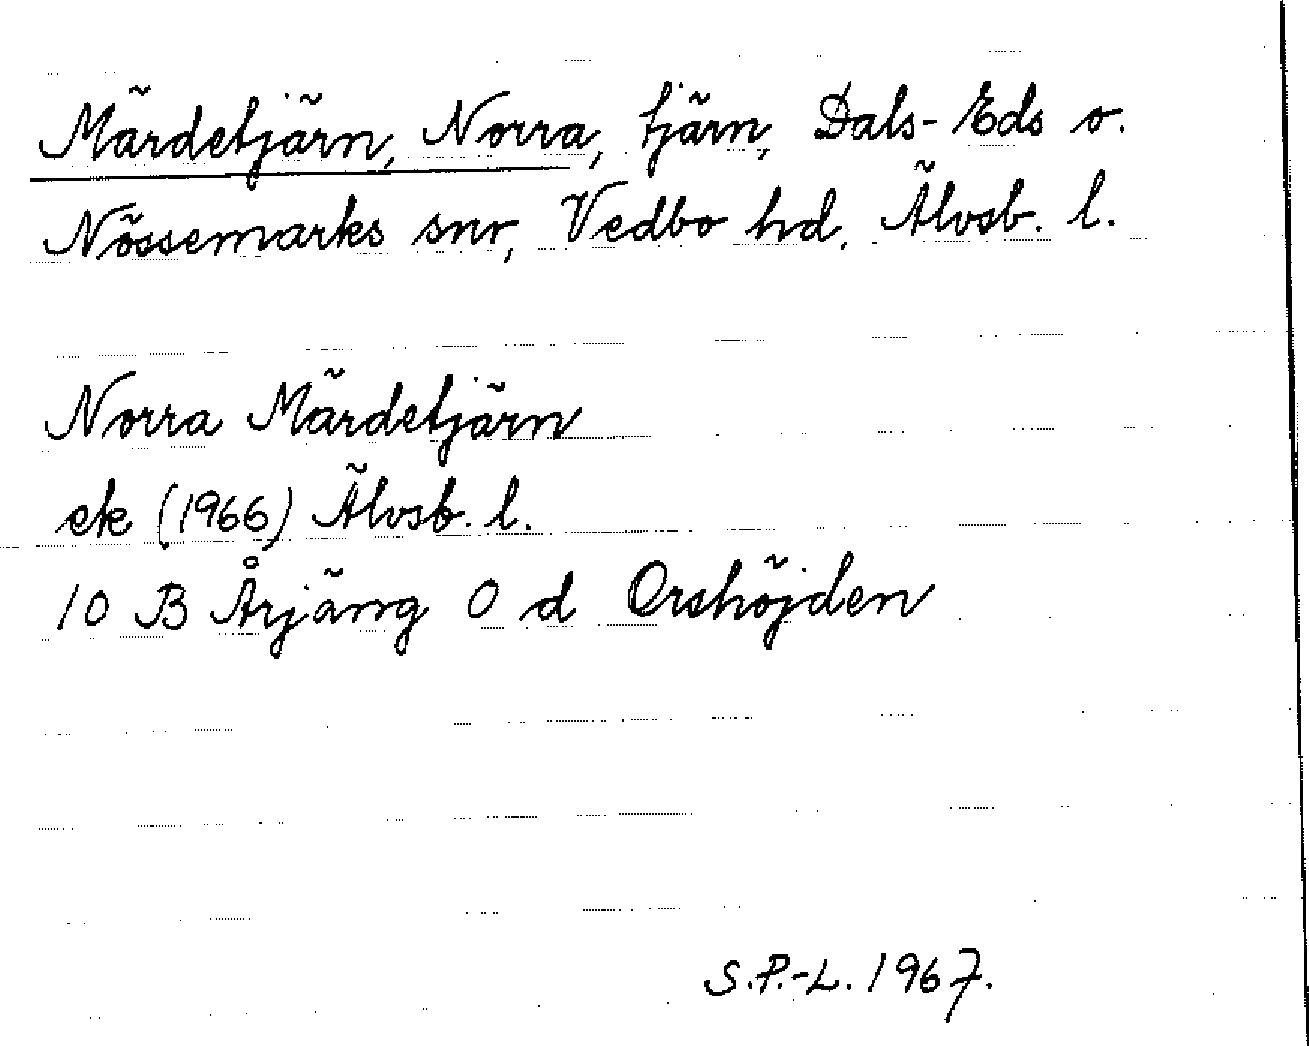 Märdetjärn, Norra, tjärn, Dals-Eds o.
Nössemarks snr, Vedbo hd, Älvsb. l.
Norra Märdetjärn
ek (1966) Älvsb. l.
10 B Årjäng 0 d Orshöjden
S.P.-L. 1967.